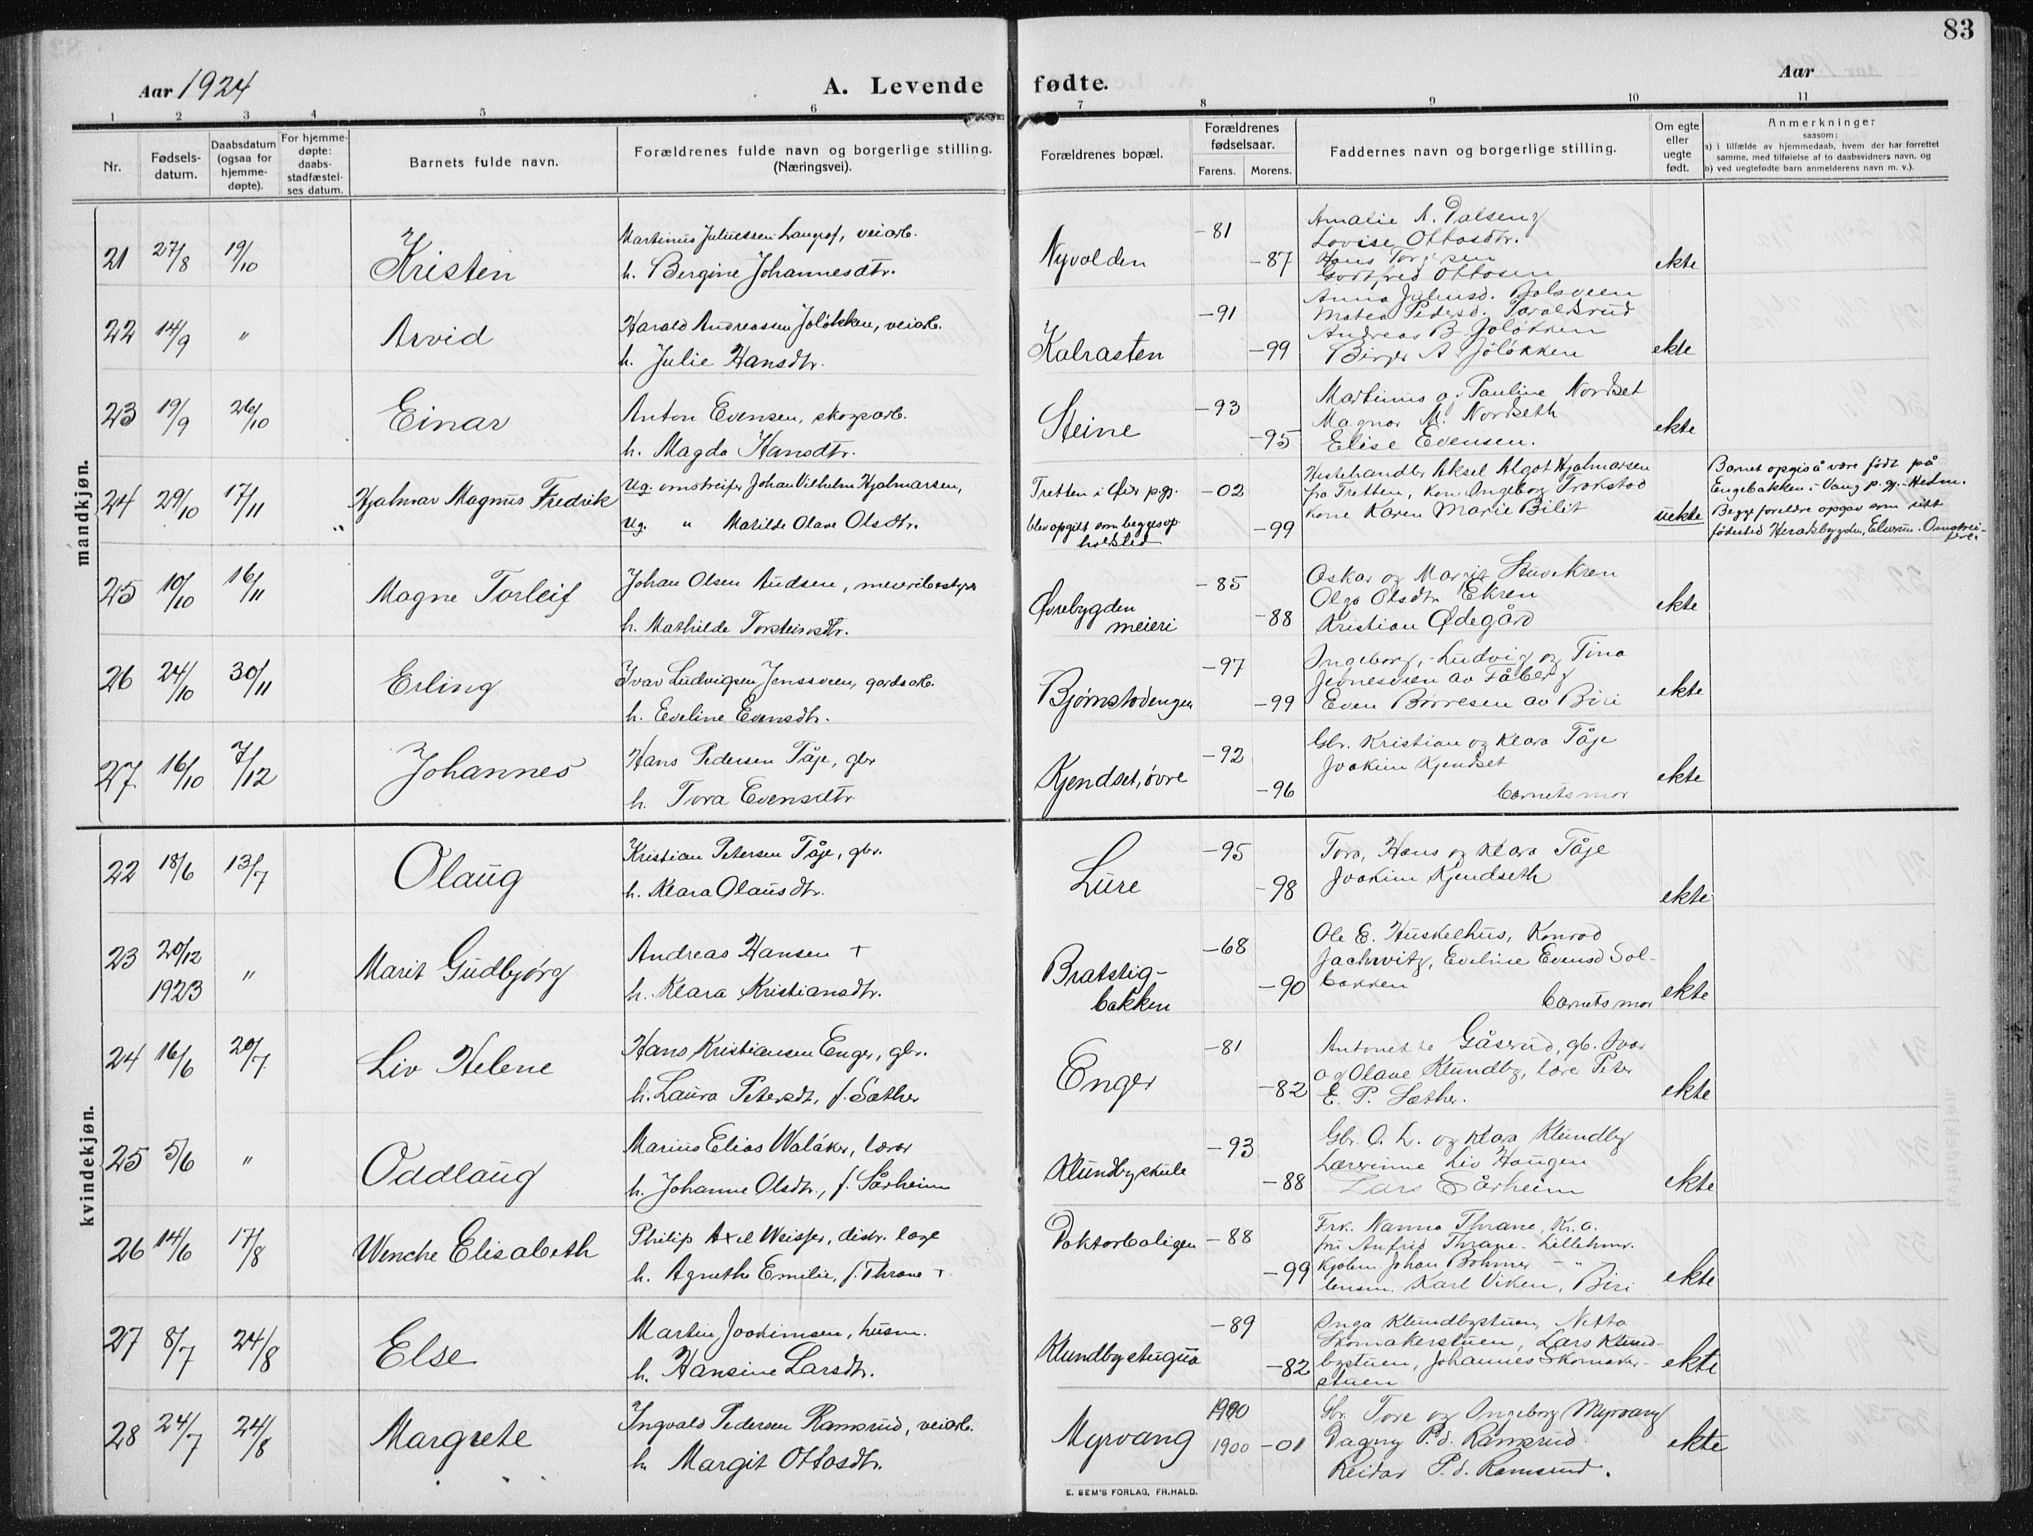 83
Aar 1924
A. Levende fødte.
Aar
1 2 3 4 5 6 7 8 9 10 11
Nr.
Fødsels-
datum.
Daabsdatum
(ogsaa for
hjemme-
døpte).
For hjemme-
døpte:
daabs-
stadfæstel-
ses datum.
Barnets fulde navn.
Forældrenes fulde navn og borgerlige stilling.
(Næringsvei).
Forældrenes bopæl.
Forældrenes
fødselsaar.
Farens. Morens.
Faddernes navn og borgerlige stilling.
Om egte
eller
uegte
født.
Anmerkninger
saasom:
a) i tilfælde av hjemmedaab, hvem der har forrettet
samme, med tilføielse af to daabsvidners navn, og
b) ved uegtefødte barn anmelderens navn m. v.).
mandkjøn.
21 27/8 19/10 Kristen
Martinus Juliussen Laugrof, veiarb.
h. Bergine Johannesdtr.
Nyvolden -81 -87
Amalie A. Dalseng
Lovise Ottosdtr.
Hans Torgesen
Godtfred Ottosen
ekte
22 14/9 " Arvid
Harald Andreassen Joløkken, veiarb.
h. Julie Hansdtr.
Kalrasten -91 -99
Anna Juliusd. Dalsveen
Matea Pedersd. Taraldsrud
Andreas B. Joløkken
Birger A. Joløkken
ekte
23 19/9 26/10 Einar
Anton Evensen, skogsarb.
h. Magda Hansdtr.
Steine -93 -95
Martinus og Pauline Nordset
Magnar M. Nordseth
Elise Evensen.
ekte
24 29/10 17/11 Hjalmar Magnus Fredrik
Ug. omstreifer Johan Vilhelm Hjalmarsen,
Ug. " Matilde Olave Olsdtr.
Tretten i Øier p.gj.
blev opgitt som begges op-
holdsted
-02 -99
Hestehandler Aksel Algot Hjalmarsen
fra Tretten, kone Ingeborg Trokstad
kone Karen Marie Bilit
uekte
Barnet opgis å være født på
Engebakken i Vang p.gj. Hedm.
Begge foreldre opgav som sitt
fødested Heradsbygden, Elverum. Omstrei-
fere
25 10/10 16/11 Magne Torleif
Johan Olsen Audsen, meieribestyrer
h. Mathilde Torsteinsdtr.
Øvrebygden
meieri
-85 -88
Oskar og Margit Stuvekren
Olga Olsdtr Ekren
Kristian Ødegård
ekte
26 24/10 30/11 Erling
Ivar Ludvigsen Jenssveen, gardsarb.
h. Eveline Evensdtr.
Bjørnstadengen -97 -99
Ingeborg, Ludvig og Tina
Jevnesveen av Fåberg
Even Børresen av Biri
ekte
27 16/10 7/12 Johannes
Hans Pedersen Tåje, gbr
h. Tora Evensdtr
Kjendset, øvre -92 -96
Gbr. Kristian og Klara Tåje
Joakim Kjendset
barnets mor
ekte
kvindekjøn.
22 18/6 13/7 Olaug
Kristian Petersen Tåje, gbr.
h. Klara Olausdtr.
Lure -95 -98
Tora, Hans og Klara Tåje
Joakim Kjendseth
ekte
23 20/12 1923 " Marit Gudbjørg
Andreas Hansen +
h. Klara Kristiansdtr.
Bratstig-
bakken
-68 -90
Ole E. Huskelhus, Konrad
Jachwitz, Eveline Evensd Sol-
bakken
barnets mor
ekte
24 16/6 20/7 Liv Helene
Hans Kristiansen Enger, gbr.
h. Laura Petersdt, f. Sæther
Enger -81 -82
Antonette Gåserud, gb. Ivar
og Olave Klundby, lære Peter
E. P. Sæther.
ekte
25 5/6 " Oddlaug
Marius Elias Walåker, lærer
h. Johanne Olsdtr., f. Sårheim
Klundby skule -93 -88
Gbr. O. L. og Klara Klundby
Lærerinne Liv Haugen
Lars Sårheim
ekte
26 14/6 17/8 Wenche Elisabeth
Philip Axel Weisser, distr. læge
h. Agnethe Emilie, f. Thrane +
Doktorboligen -88 -99
Frk. Nanna Thrane, Kr.a.
fru Anfrid Thrane. Lillehmr.
Kjøbm Johan Bohmer - " -
lensm. Karl Viken, Biri
ekte
27 8/7 24/8 Else
Martin Joakimsen, husm.
h. Hansine Larsdtr.
Klundbystugua -89 -82
Inga Klundbystuen, Netta
Skomakerstuen, Lars Klund-
bystuen, Johannes Skomaker-
stuen
ekte
28 24/7 24/8 Margrete
Ingvald Pedersen Ramsrud, veiarb.
h. Margit Ottosdtr.
Myrvang 1900 1900 -01
Gbr. Tore og Ingeborg Myrvang
Dagny P.d. Ramsrud
Reidar P.d. Ramsrud.
ekte
E. SEM'S FORLAG, FR.HALD.